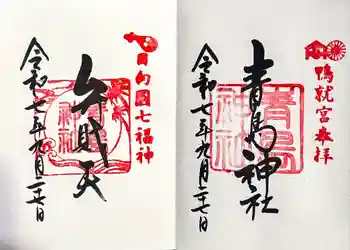 鴨就宮参拝
青島神社
青島神社
令和七年九月二十七日
日向國七福神
弁財天
令和七年九月二十七日